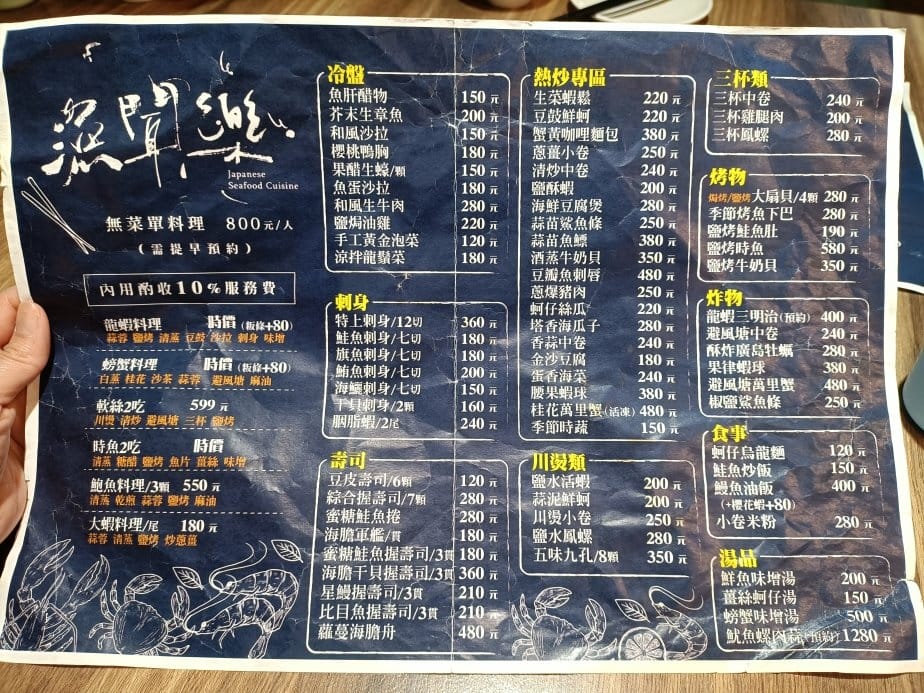 漁聞樂
Japanese
Seafood Cuisine
無菜單料理 800元/人
(需提早預約)
內用酌收10%服務費
龍蝦料理 時價 (粄條+80)
蒜蓉 鹽烤 清蒸 豆鼓 沙拉 刺身 味增
螃蟹料理 時價 (粄條+80)
白蒸 桂花 沙茶 蒜蓉 避風塘 麻油
軟絲2吃 599 元
川燙 清炒 避風塘 三杯 鹽烤
時魚2吃 時價
清蒸 糖醋 鹽烤 魚片 薑絲 味增
鮑魚料理/3顆 550 元
清蒸 乾煎 蒜蓉 鹽烤 麻油
大蝦料理/尾 180 元
蒜蓉 清蒸 鹽烤 炒蔥薑
冷盤
魚肝醋物 150 元
芥末生章魚 200 元
和風沙拉 150 元
櫻桃鴨胸 180 元
果醋生蠔/顆 150 元
魚蛋沙拉 180 元
和風生牛肉 280 元
鹽焗油雞 220 元
手工黃金泡菜 120 元
涼拌龍鬚菜 180 元
刺身
特上刺身/12切 360 元
鮭魚刺身/七切 180 元
旗魚刺身/七切 180 元
鮪魚刺身/七切 200 元
海鱺刺身/七切 150 元
干貝刺身/2顆 160 元
胭脂蝦/2尾 240 元
壽司
豆皮壽司/6顆 120 元
綜合握壽司/7顆 280 元
蜜糖鮭魚捲 280 元
海膽軍艦/貫 180 元
蜜糖鮭魚握壽司/3貫 180 元
海膽干貝握壽司/3貫 360 元
星鰻握壽司/3貫 210 元
比目魚握壽司/3貫 210 元
蘿蔓海膽舟 480 元
熱炒專區
生菜蝦鬆 220 元
豆鼓鮮蚵 220 元
蟹黃咖哩麵包 380 元
蔥薑小卷 250 元
清炒中卷 240 元
鹽酥蝦 200 元
海鮮豆腐煲 280 元
蒜苗鯊魚條 250 元
蒜苗魚鰾 380 元
酒蒸牛奶貝 350 元
豆瓣魚刺唇 480 元
蔥爆豬肉 250 元
蚵仔絲瓜 220 元
塔香海瓜子 280 元
香蒜中卷 240 元
金沙豆腐 180 元
蛋香海菜 240 元
腰果蝦球 380 元
桂花萬里蟹(活凍) 480 元
季節時蔬 150 元
川燙類
鹽水活蝦 200 元
蒜泥鮮蚵 200 元
川燙小卷 250 元
鹽水鳳螺 280 元
五味九孔/8顆 350 元
三杯類
三杯中卷 240 元
三杯雞腿肉 200 元
三杯鳳螺 280 元
烤物
焗烤/鹽烤 大扇貝/4顆 280 元
季節烤魚下巴 280 元
鹽烤鮭魚肚 190 元
鹽烤時魚 580 元
鹽烤牛奶貝 350 元
炸物
龍蝦三明治(預約) 400 元
避風塘中卷 240 元
酥炸廣島牡蠣 280 元
果律蝦球 380 元
避風塘萬里蟹 480 元
椒鹽鯊魚條 250 元
食事
蚵仔烏龍麵 120 元
鮭魚炒飯 150 元
鰻魚油飯 400 元
(+櫻花蝦+80)
小卷米粉 280 元
湯品
鮮魚味增湯 200 元
薑絲蚵仔湯 150 元
螃蟹味增湯 500 元
魷魚螺肉蒜(預約) 1280 元